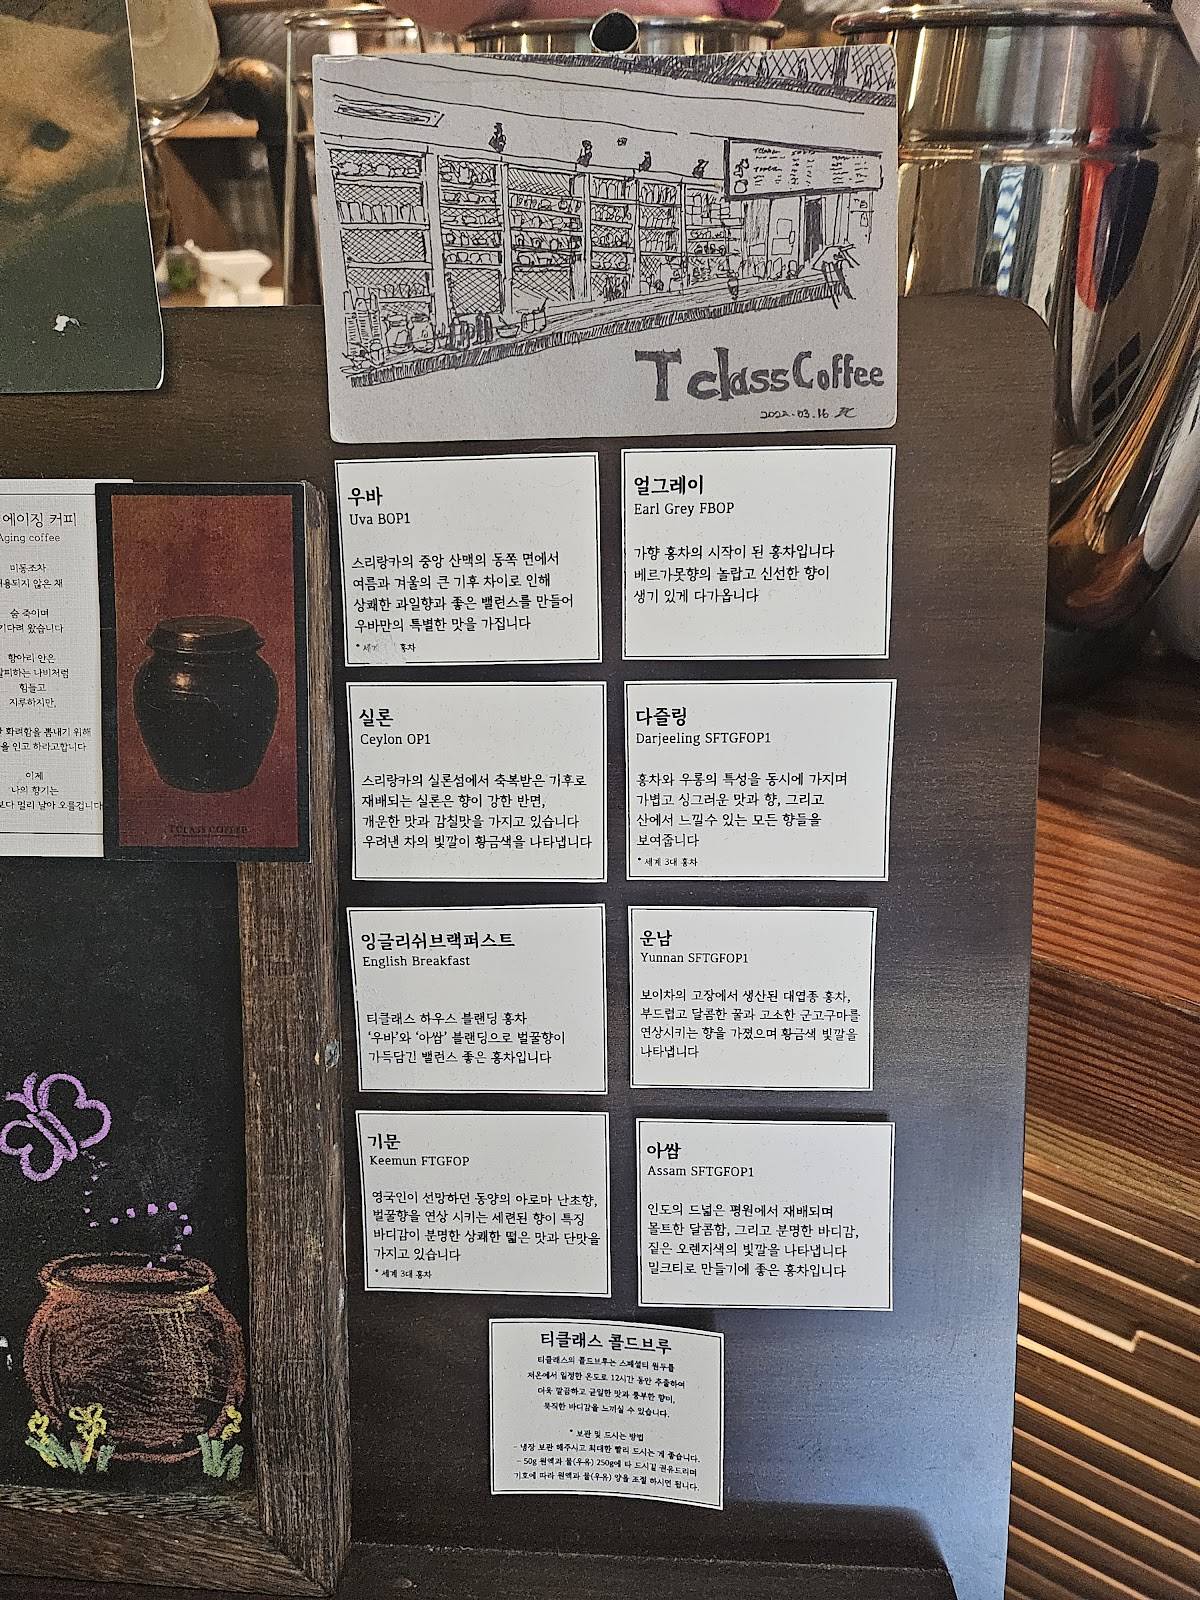 T class Coffee
2022.03.16
우바
Uva BOP1
스리랑카의 중앙 산맥의 동쪽 면에서
여름과 겨울의 큰 기후 차이로 인해
상쾌한 과일향과 좋은 밸런스를 만들어
우바만의 특별한 맛을 가집니다
* 세계 홍차
얼그레이
Earl Grey FBOP
가향 홍차의 시작이 된 홍차입니다
베르가못향의 놀랍고 신선한 향이
생기 있게 다가옵니다
실론
Ceylon OP1
스리랑카의 실론섬에서 축복받은 기후로
재배되는 실론은 향이 강한 반면,
개운한 맛과 감칠맛을 가지고 있습니다
우려낸 차의 빛깔이 황금색을 나타냅니다
다즐링
Darjeeling SFTGFOP1
홍차와 우롱의 특성을 동시에 가지며
가볍고 싱그러운 맛과 향, 그리고
산에서 느낄수 있는 모든 향들을
보여줍니다
* 세계 3대 홍차
잉글리쉬브랙퍼스트
English Breakfast
티클래스 하우스 블랜딩 홍차
'우바'와 '아쌈' 블랜딩으로 벌꿀향이
가득담긴 밸런스 좋은 홍차입니다
운남
Yunnan SFTGFOP1
보이차의 고장에서 생산된 대엽종 홍차,
부드럽고 달콤한 꿀과 고소한 군고구마를
연상시키는 향을 가졌으며 황금색 빛깔을
나타냅니다
기문
Keemun FTGFOP
영국인이 선망하던 동양의 아로마 난초향,
벌꿀향을 연상 시키는 세련된 향이 특징
바디감이 분명한 상쾌한 떫은 맛과 단맛을
가지고 있습니다
* 세계 3대 홍차
아쌈
Assam SFTGFOP1
인도의 드넓은 평원에서 재배되며
몰트한 달콤함, 그리고 분명한 바디감,
짙은 오렌지색의 빛깔을 나타냅니다
밀크티로 만들기에 좋은 홍차입니다
티클래스 콜드브루
티클래스의 콜드브루는 스페셜티 원두를
저온에서 일정한 온도로 12시간 동안 추출하여
더욱 깔끔하고 균일한 맛과 풍부한 향미,
묵직한 바디감을 느끼실 수 있습니다.
* 보관 및 드시는 방법
- 냉장 보관 해주시고 최대한 빨리 드시는 게 좋습니다.
- 50g 원액과 물(우유) 250g에 타 드시길 권유드리며
기호에 따라 원액과 물(우유) 양을 조절 하시면 됩니다.
에이징 커피
Aging coffee
미동조차
용되지 않은 채
숨 죽이며
기다려 왔습니다
항아리 안은
갈피하는 나비처럼
힘들고
지루하지만,
화려함을 뽐내기 위해
을 인고 하라고합니다
이제
나의 향기는
보다 멀리 날아 오를겁니다
TCLASS COFFEE